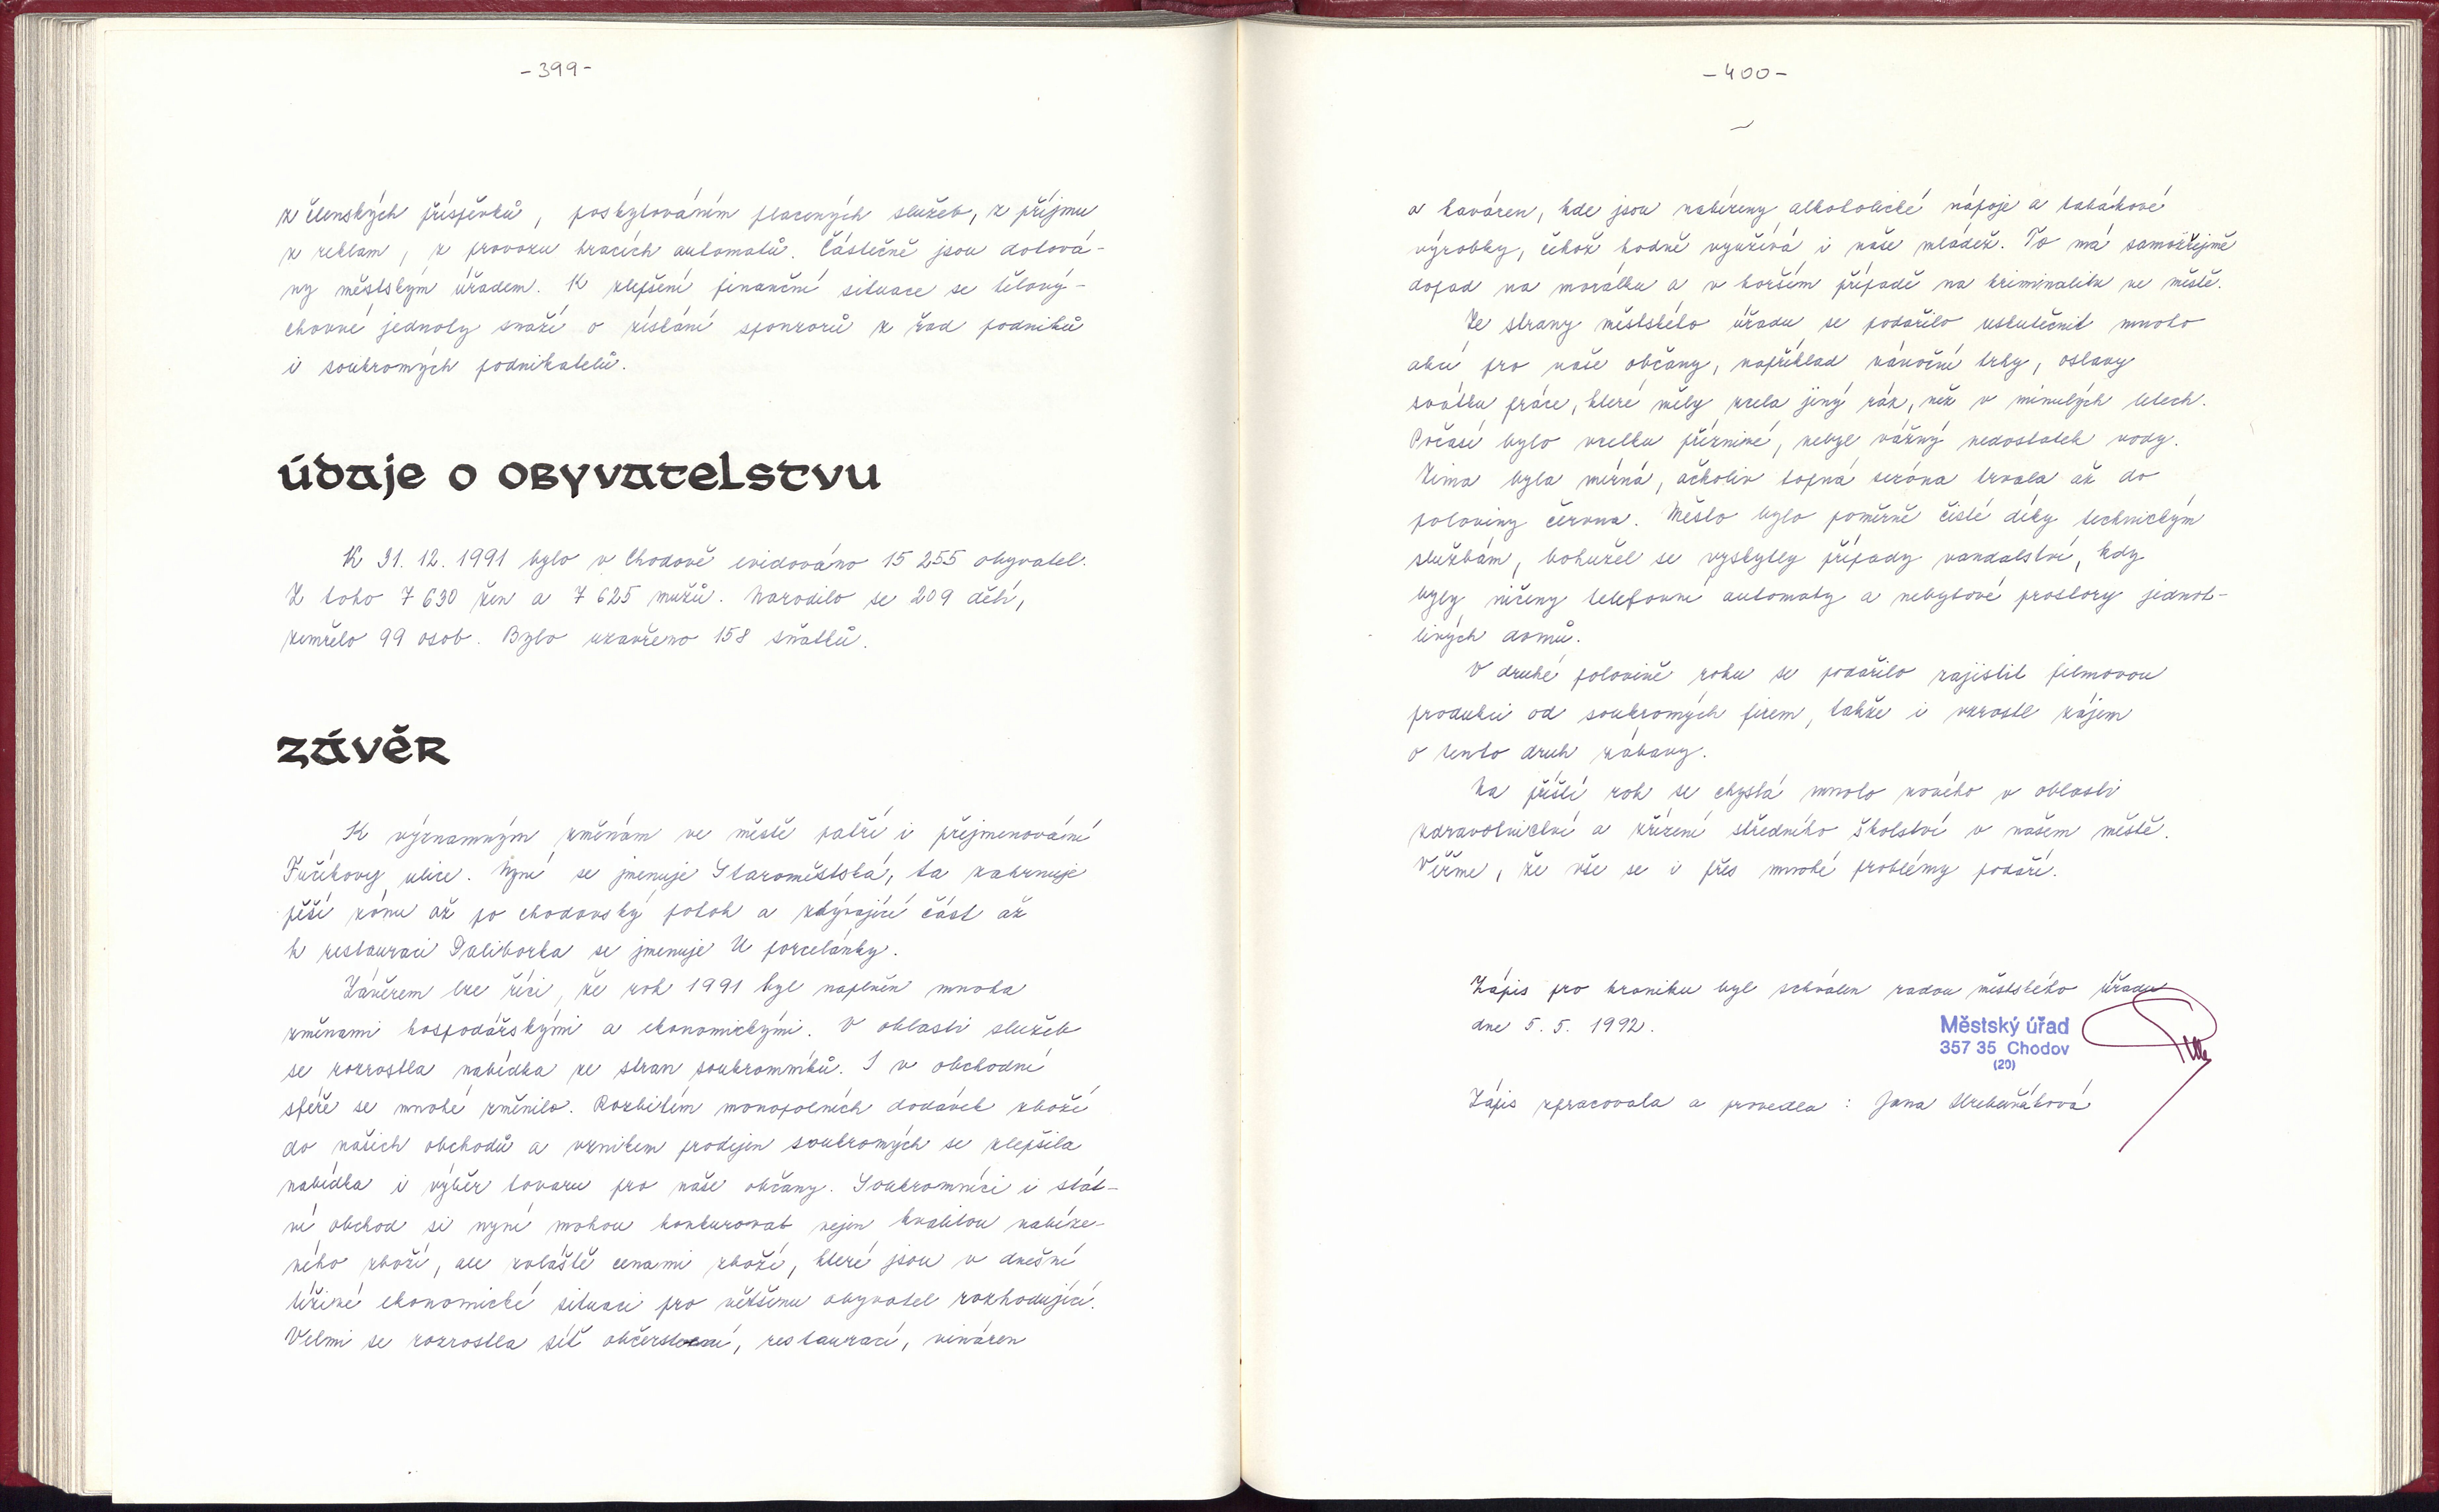 -399-
z členských příspěvků, poskytováním placených služeb, z příjmu
z reklam, z provozu hracích automatů. Částečně jsou dotová-
ny městským úřadem. K zlepšení finanční situace se tělový-
chovné jednoty snaží o získání sponzorů z řad podniků
i soukromých podnikatelů.
údaje o obyvatelstvu
K 31. 12. 1991 bylo v Chodově evidováno 15 255 obyvatel.
Z toho 7 630 žen a 7 625 mužů. Narodilo se 209 dětí,
zemřelo 99 osob. Bylo uzavřeno 158 sňatků.
závěr
K významným změnám ve městě patří i přejmenování
Fučíkovy ulice. Nyní se jmenuje Staroměstská, ta zahrnuje
pěší zónu až po chodovský potok a zbývající část až
k restauraci Daliborka se jmenuje U porcelánky.
Závěrem lze říci, že rok 1991 byl naplněn mnoha
změnami hospodářskými a ekonomickými. V oblasti služeb
se rozrostla nabídka ze stran soukromníků. I v obchodní
sféře se mnohé změnilo. Rozbitím monopolních dodávek zboží
do našich obchodů a vznikem prodejen soukromých se zlepšila
nabídka i výběr tovaru pro naše občany. Soukromníci i stát-
ní obchod si nyní mohou konkurovat nejen kvalitou nabíze-
ného zboží, ale zvláště cenami zboží, které jsou v dnešní
tíživé ekonomické situaci pro většinu obyvatel rozhodující.
Velmi se rozrostla síť občerstvení, restaurací, vináren
-400-
a kaváren, kde jsou nabízeny alkoholické nápoje a tabákové
výrobky, čehož hodně využívá i naše mládež. To má samozřejmě
dopad na morálku a v horším případě na kriminalitu ve městě.
Ze strany městského úřadu se podařilo uskutečnit mnoho
akcí pro naše občany, například vánoční trhy, oslavy
svátku práce, které měly zcela jiný ráz, než v minulých letech.
Počasí bylo vcelku příznivé, nebyl vážný nedostatek vody.
Zima byla mírná, ačkoliv topná sezóna trvala až do
poloviny června. Město bylo poměrně čisté díky technickým
službám, bohužel se vyskytly případy vandalství, kdy
byly ničeny telefonní automaty a nebytové prostory jednot-
livých domů.
V druhé polovině roku se podařilo zajistit filmovou
produkci od soukromých firem, takže i vzrostl zájem
o tento druh zábavy.
Na příští rok se chystá mnoho nového v oblasti
zdravotnictví a zřízení středního školství v našem městě.
Věřme, že vše se i přes mnohé problémy podaří.
Zápis pro kroniku byl schválen radou městského úřadu
dne 5. 5. 1992.
Městský úřad
357 35 Chodov
(20)
Zápis zpracovala a provedla : Jana